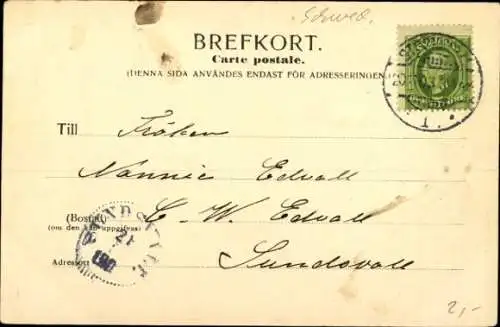 Schwed.
BREFKORT.
Carte postale.
(DENNA SIDA ANVÄNDES ENDAST FÖR ADRESSERINGEN.)
Till Fröken
Nannie Edvall
(Bostad) C. W. Edvall
(om den kan uppgifvas)
Adressort Sundsvall
SUNDSVALL
21
1.
2,-